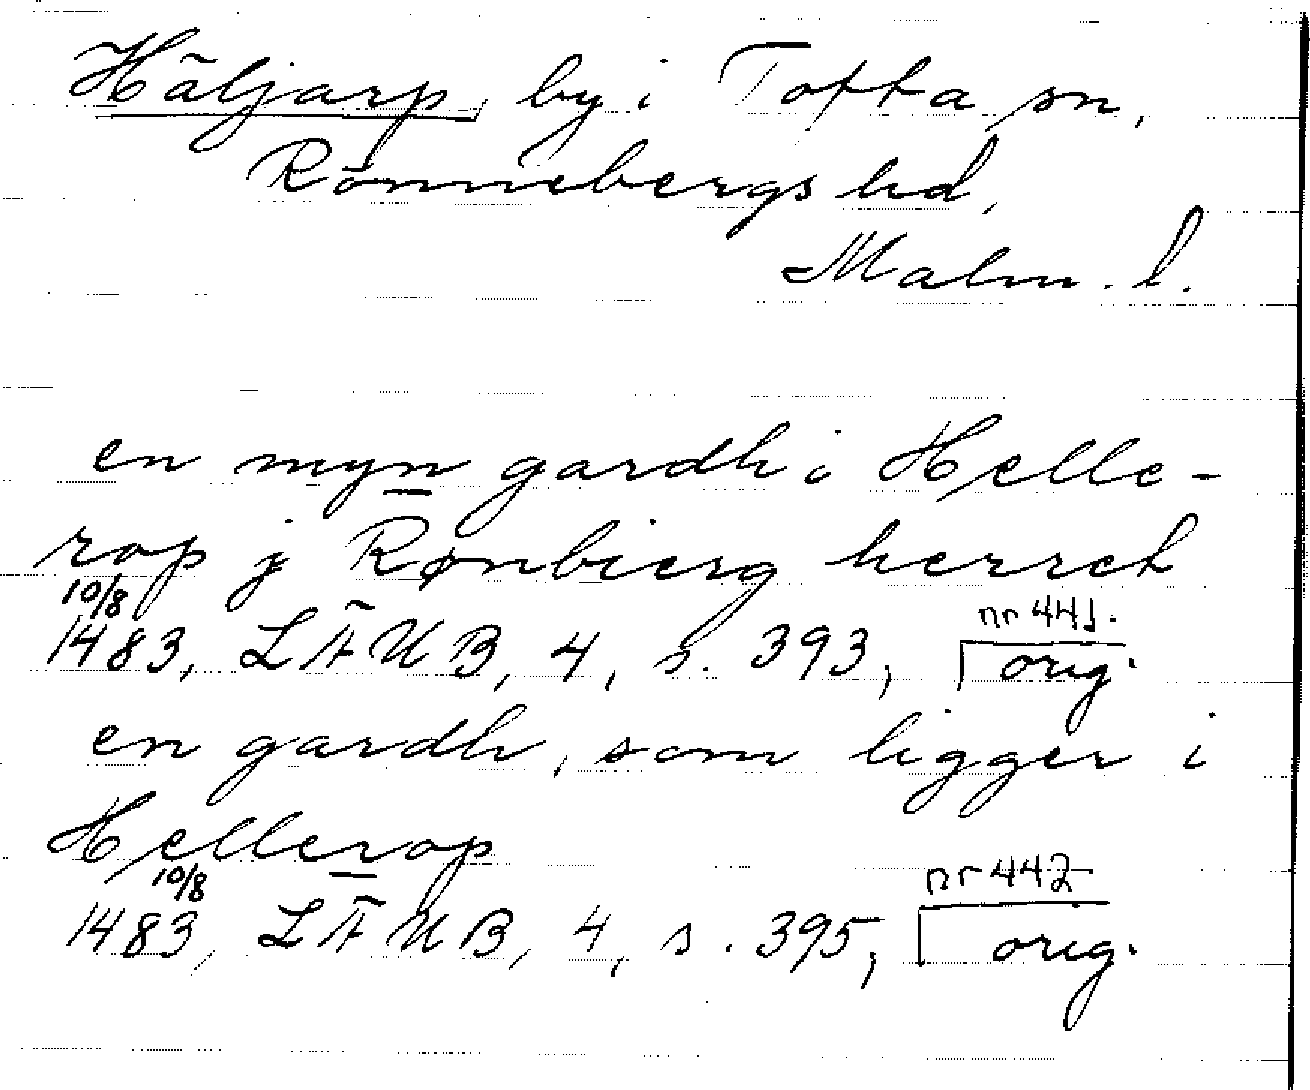 Häljarp, by i Tofta sn,
Rönnebergs hd,
Malm. l.
en myn gardh i Helle-
rop j Rønbierg herret
10/8
1483, LÄUB, 4, s. 393, nr 441. orig.
en gardh, som ligger i
Hellerop
10/8
1483, LÄUB, 4, s. 395, nr 442 orig.